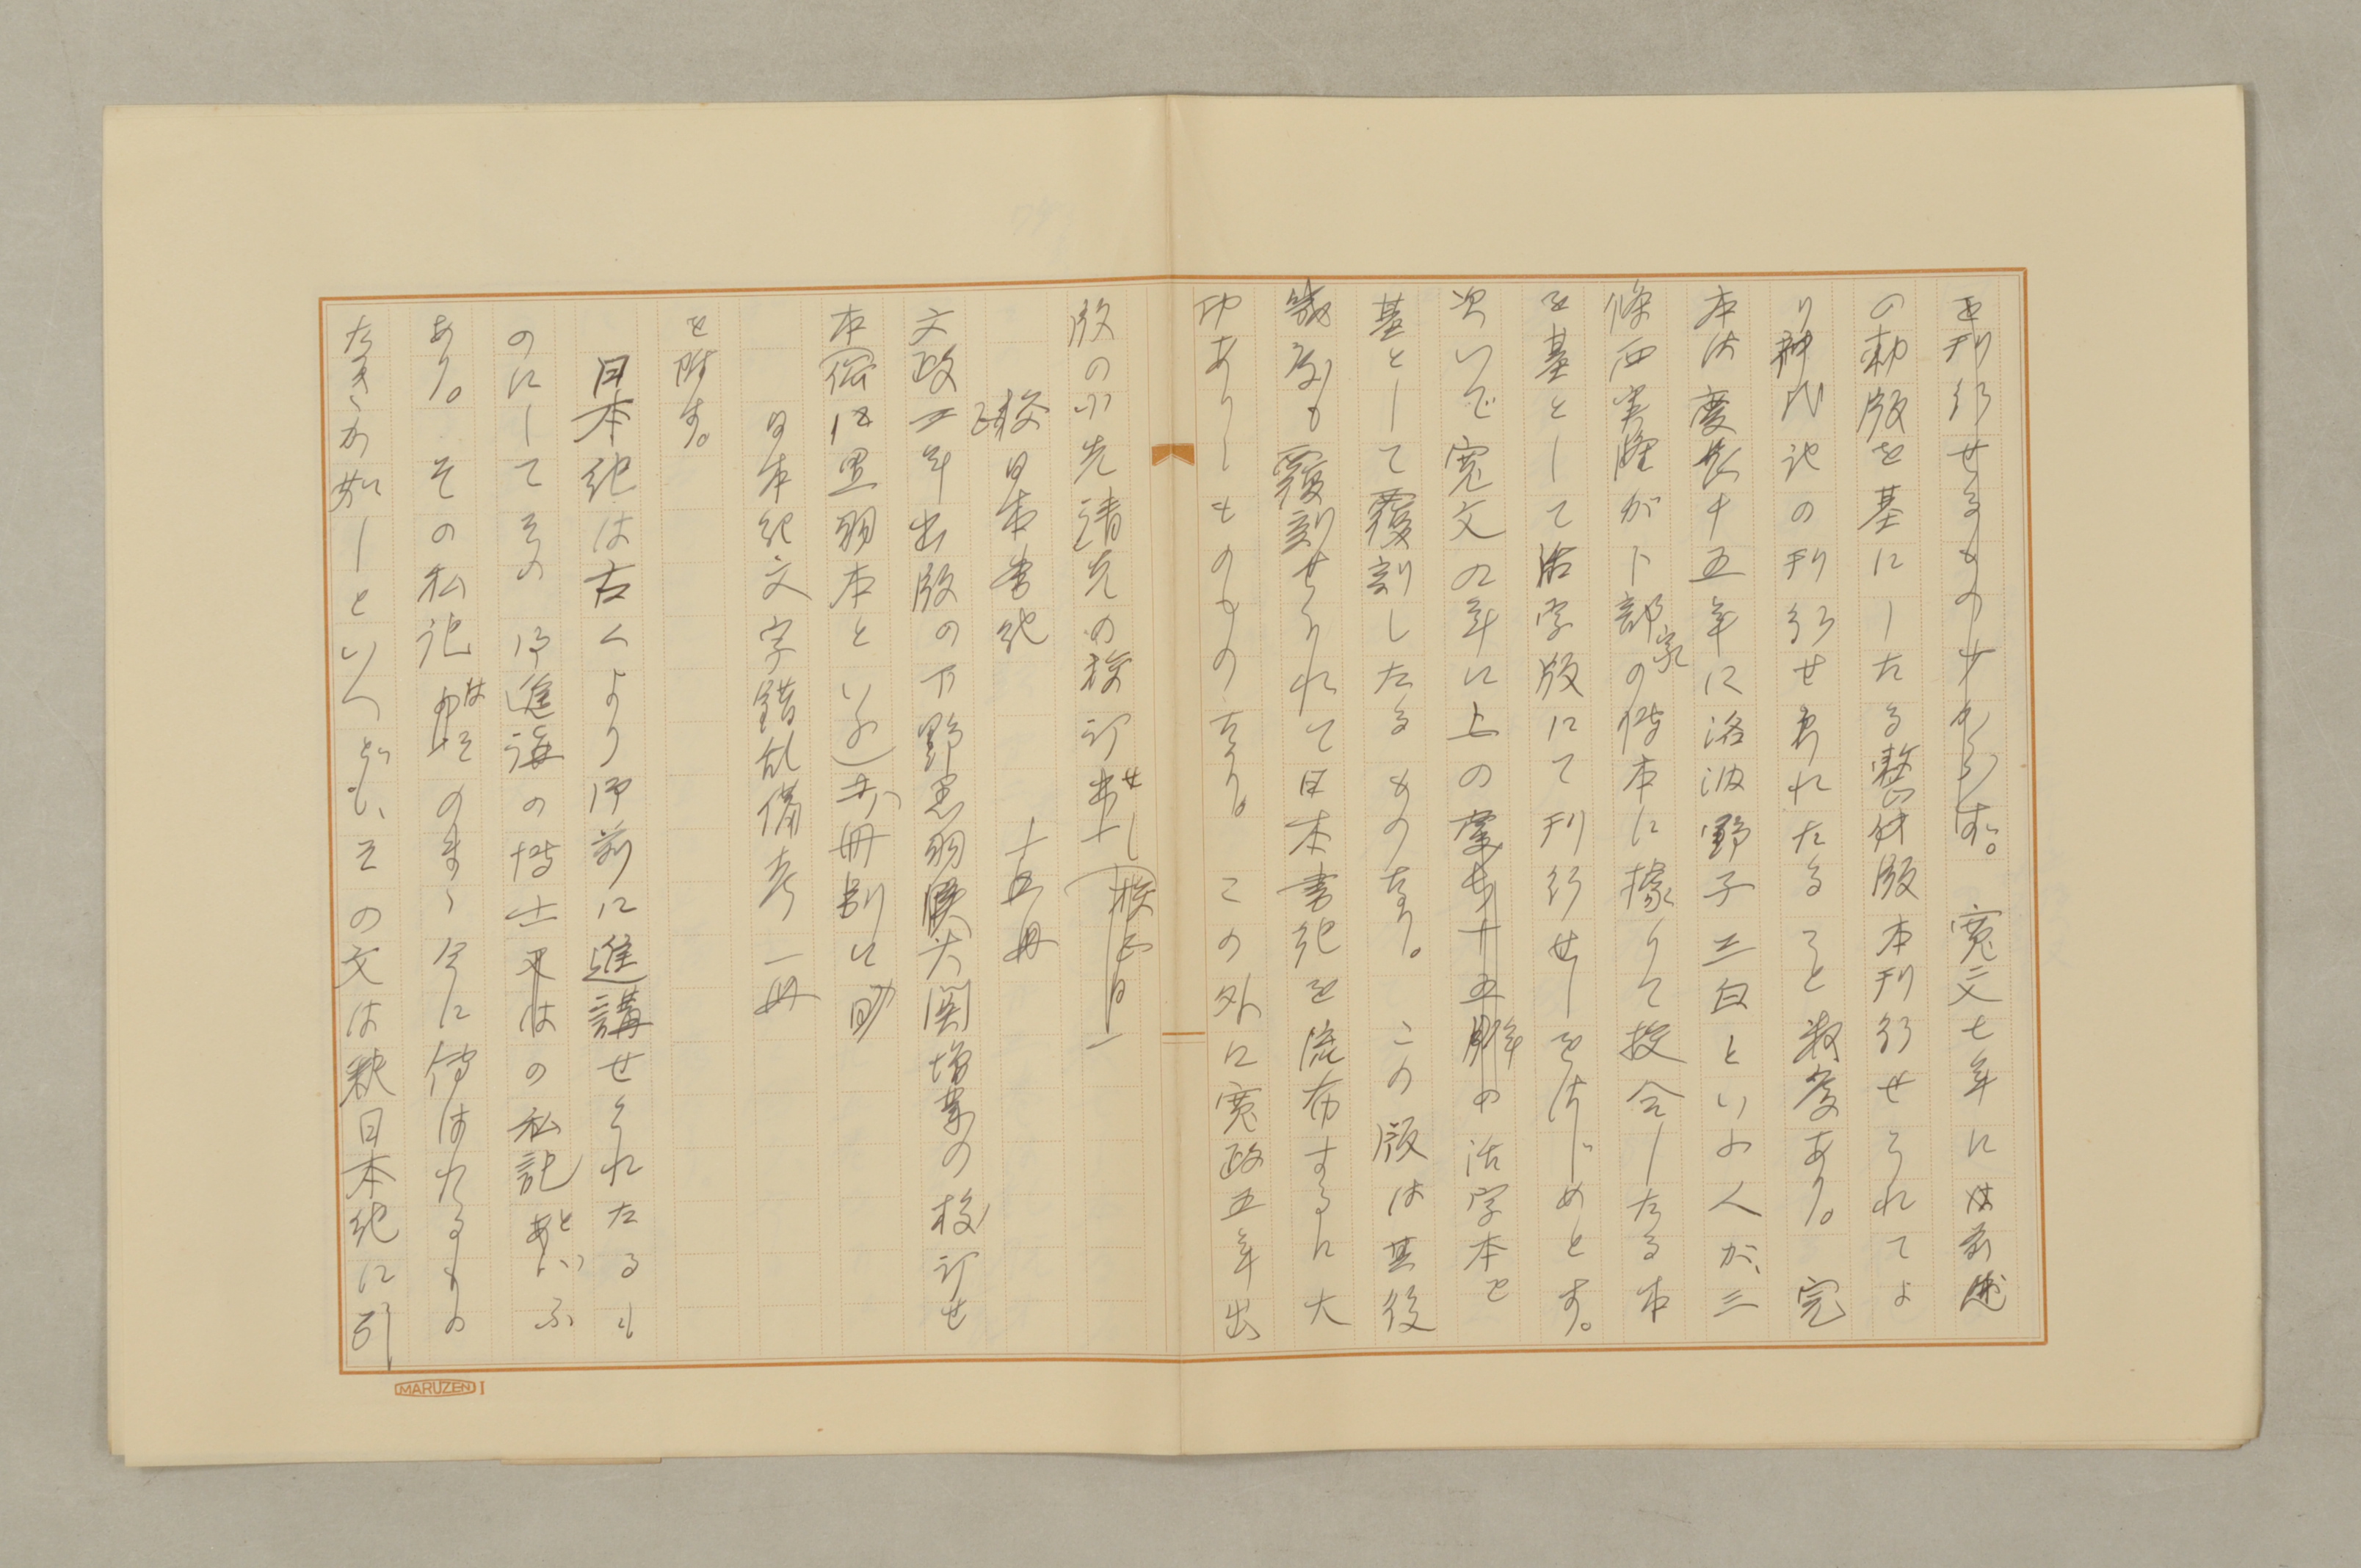 を刊行せるもの少からず。寛文七年には前述
の勅版を基にしたる整版本刊行せられてよ
り神代記の刊行せられたること数度あり。完
本は慶長十五年に洛汭野子三白といふ人が、三
條西実隆が卜部家の傳本に據りて校合したる本
を基として活字版にて刊行せしをはじめとす。
次いで寛文九年に上の慶長十五年の活字本を
基として覆刻したるものなり。この版は其後
幾度も覆刻せられて日本書紀を流布するに大
功ありしものなり。この外に寛政五年出
版の小先清先の校訂せし
校日本書紀 十五冊
文政三年出版の下野黒羽侯大関増業の校訂せ
本(俗に黒羽本といふ)あり 冊 別に
日本紀文字錯乱備考 一冊
を附す。
日本紀は古くより御前に進講せられたるも
のにしてその 御進講の博士の私記といふ
あり。その私記はそのまゝ今に傳はれるもの
たきが如しといへども、その文は釈日本紀に引
MARUZEN I